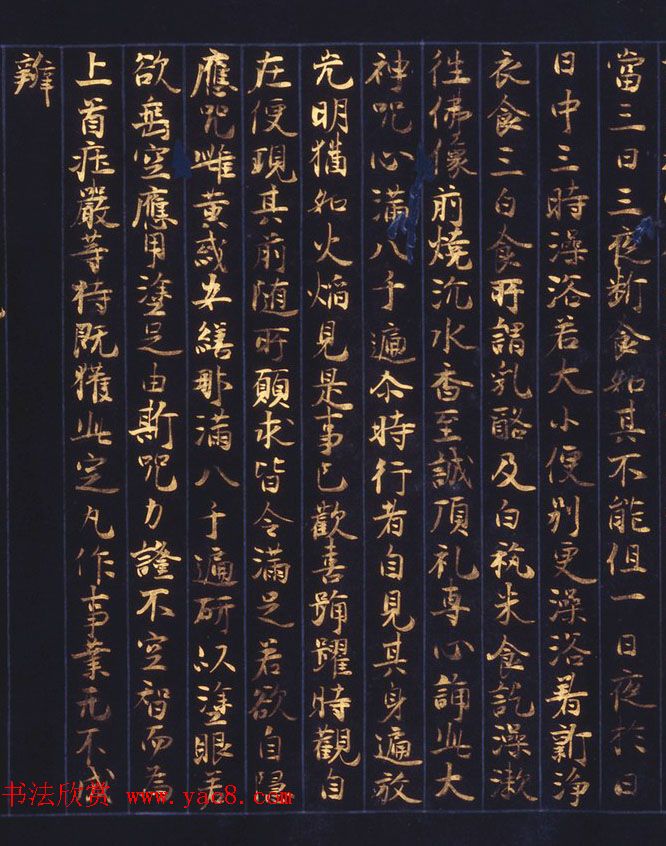 當三日三夜斷食如其不能但一日夜於日
日中三時澡浴若大小便別更澡浴著新淨
衣食三白食所謂乳酪及白秔米食訖澡漱
往佛像前燒沉水香至誠頂礼專心誦此大
神咒心滿八千遍尒時行者自見其身遍放
光明猶如火焰見是事已歡喜踊躍時觀自
在便現其前随所願求皆令滿足若欲自隱
應咒雌黃或安繕那滿八千遍研以塗眼若
欲乘空應用塗足由斯咒力證不空智而爲
上首庄嚴等持既獲此定凡作事業无不成
辦
书法欣赏 www.yac8.com